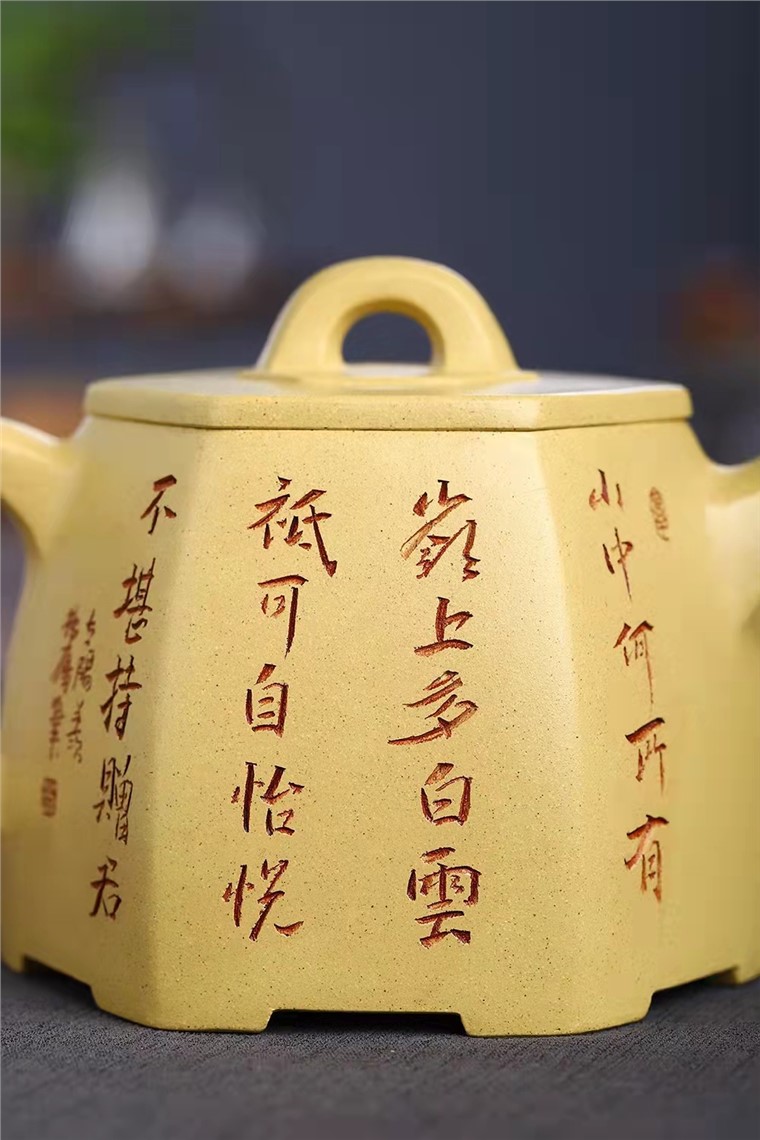 山中何所有
嶺上多白雲
祗可自怡悦
不堪持贈君